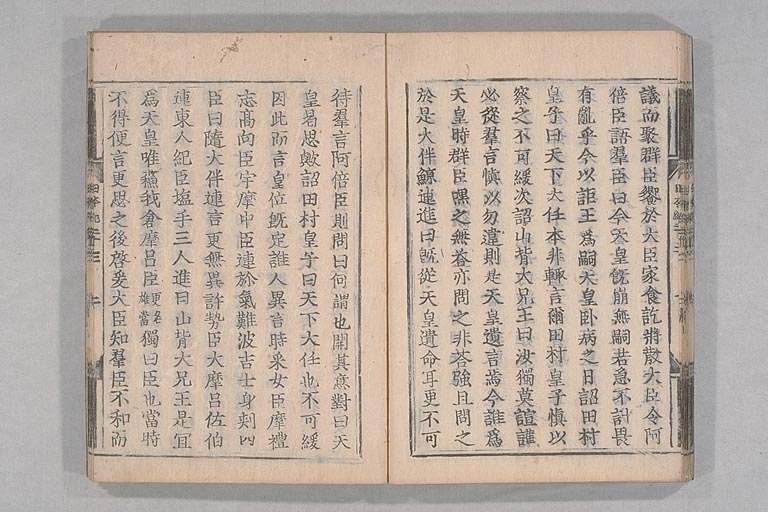 議而聚群臣饗於大臣家食訖將散大臣令阿
倍臣語羣臣曰今天皇旣崩無嗣若急不計畏
有亂乎今以詎王爲嗣天皇卧病之日詔田村
皇子曰天下大任本非輙言爾田村皇子愼以
察之不可緩次詔山背大兄王曰汝獨莫諠讙
必從羣言愼以勿違則是天皇遺言焉今誰爲
天皇時群臣嘿之無荅亦問之非荅強且問之
於是大伴鯨連進曰旣從天皇遺命耳更不可
待羣言阿倍臣則問曰何謂也開其意對曰天
皇曷思歟詔田村皇子曰天下大任也不可緩
因此而言皇位旣定誰人異言時采女臣摩禮
志髙向臣宇摩中臣連於氣難波吉士身刾四
臣曰隨大伴連言更無異許勢臣大摩呂佐伯
連東人紀臣塩手三人進曰山背大兄王是冝
爲天皇唯蘓我倉摩呂臣更名雄當獨曰臣也當時
不得便言更思之後啓爰大臣知羣臣不和而